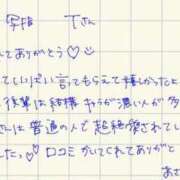 写指 Tさん
てありがとう♡☺
ていっぱい言ってもらえて嬉しかったよ
後輩は結構キャラが濃い人が多
さんは普通の人で超絶癒されてい
した。♡ 口コミかいてくれてありがと
あさ